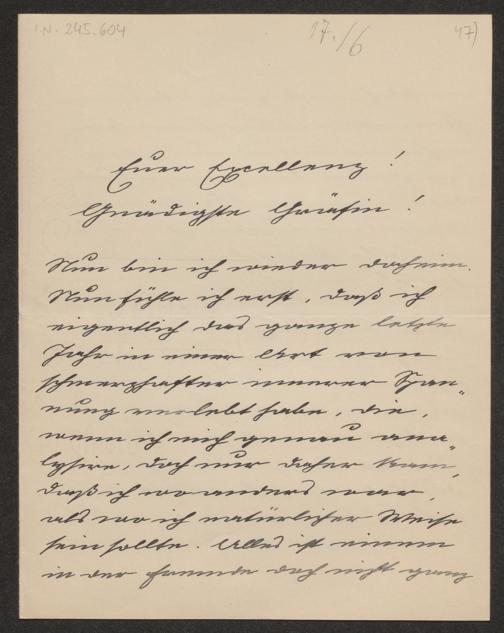 I.N. 245.604
17./6
47)
Euer Excellenz!
Gnädigste Gräfin!
Nun bin ich wieder daheim.
Nun fühle ich erst, daß ich
eigentlich das ganze letzte
Jahr in einer Art von
schmerzhafter innerer Span„
nung verlebt habe, die,
wenn ich mich genau ana„
lysire, doch nur daher kam,
daß ich wo anders war,
als wo ich natürlicher Weise
sein sollte. Alles ist einem
in der Fremde doch nicht ganz